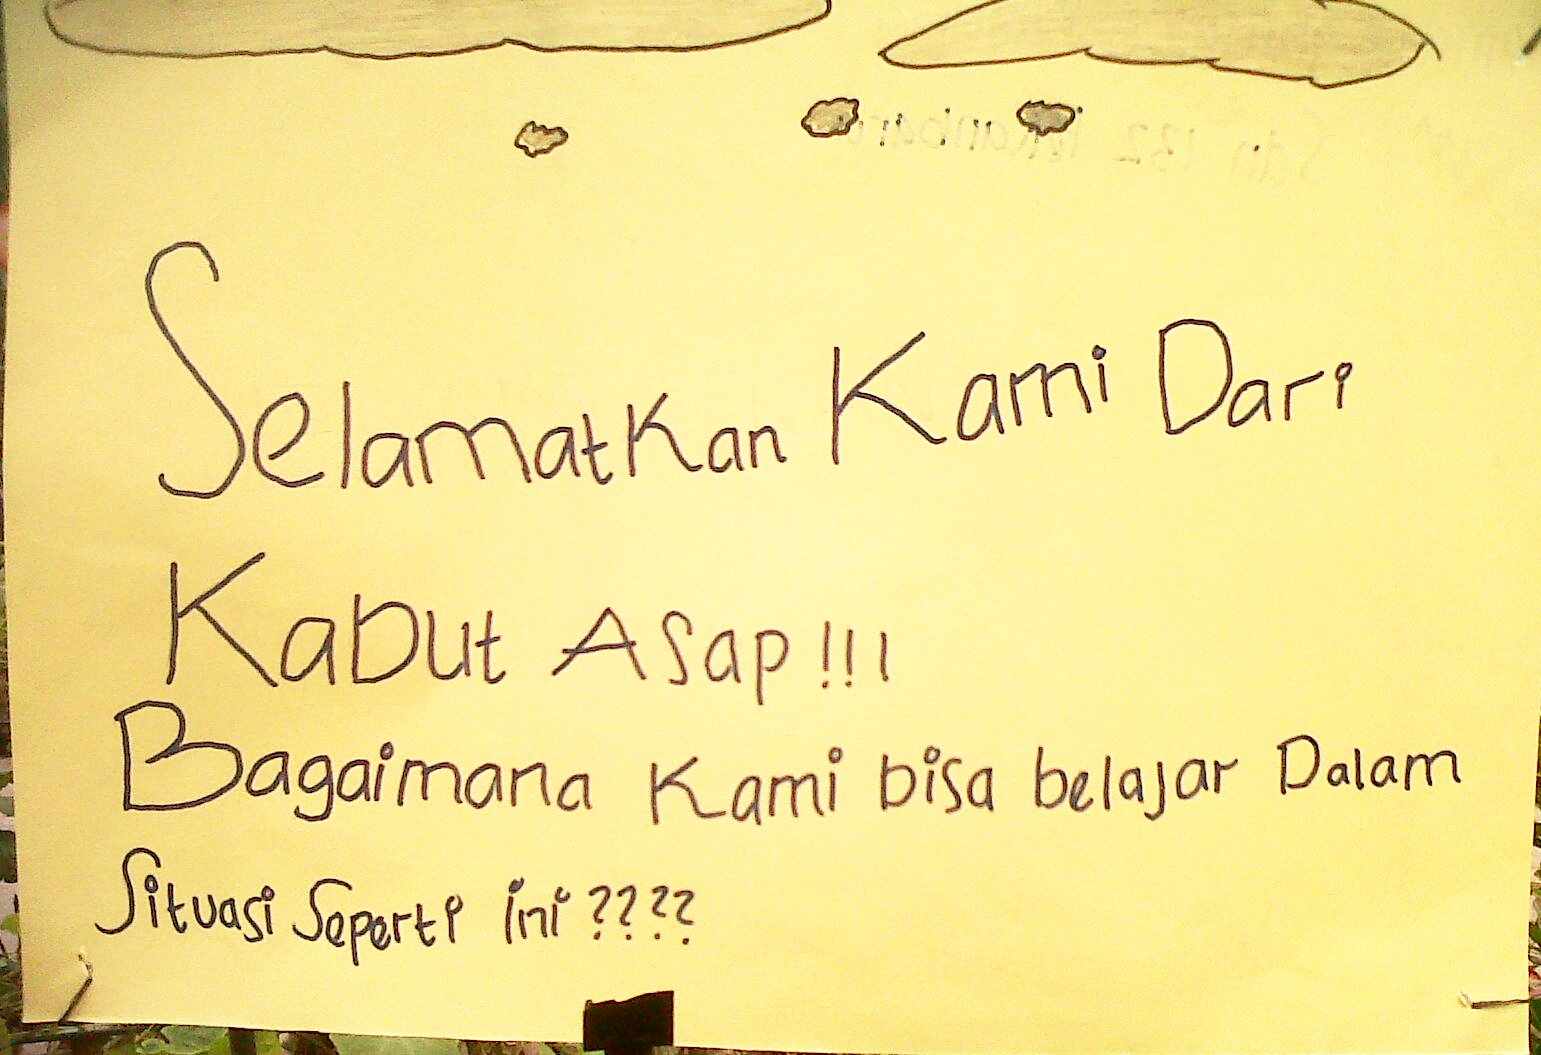 Selamatkan Kami Dari
Kabut Asap!!!
Bagaimana Kami bisa belajar Dalam
Situasi Seperti ini????